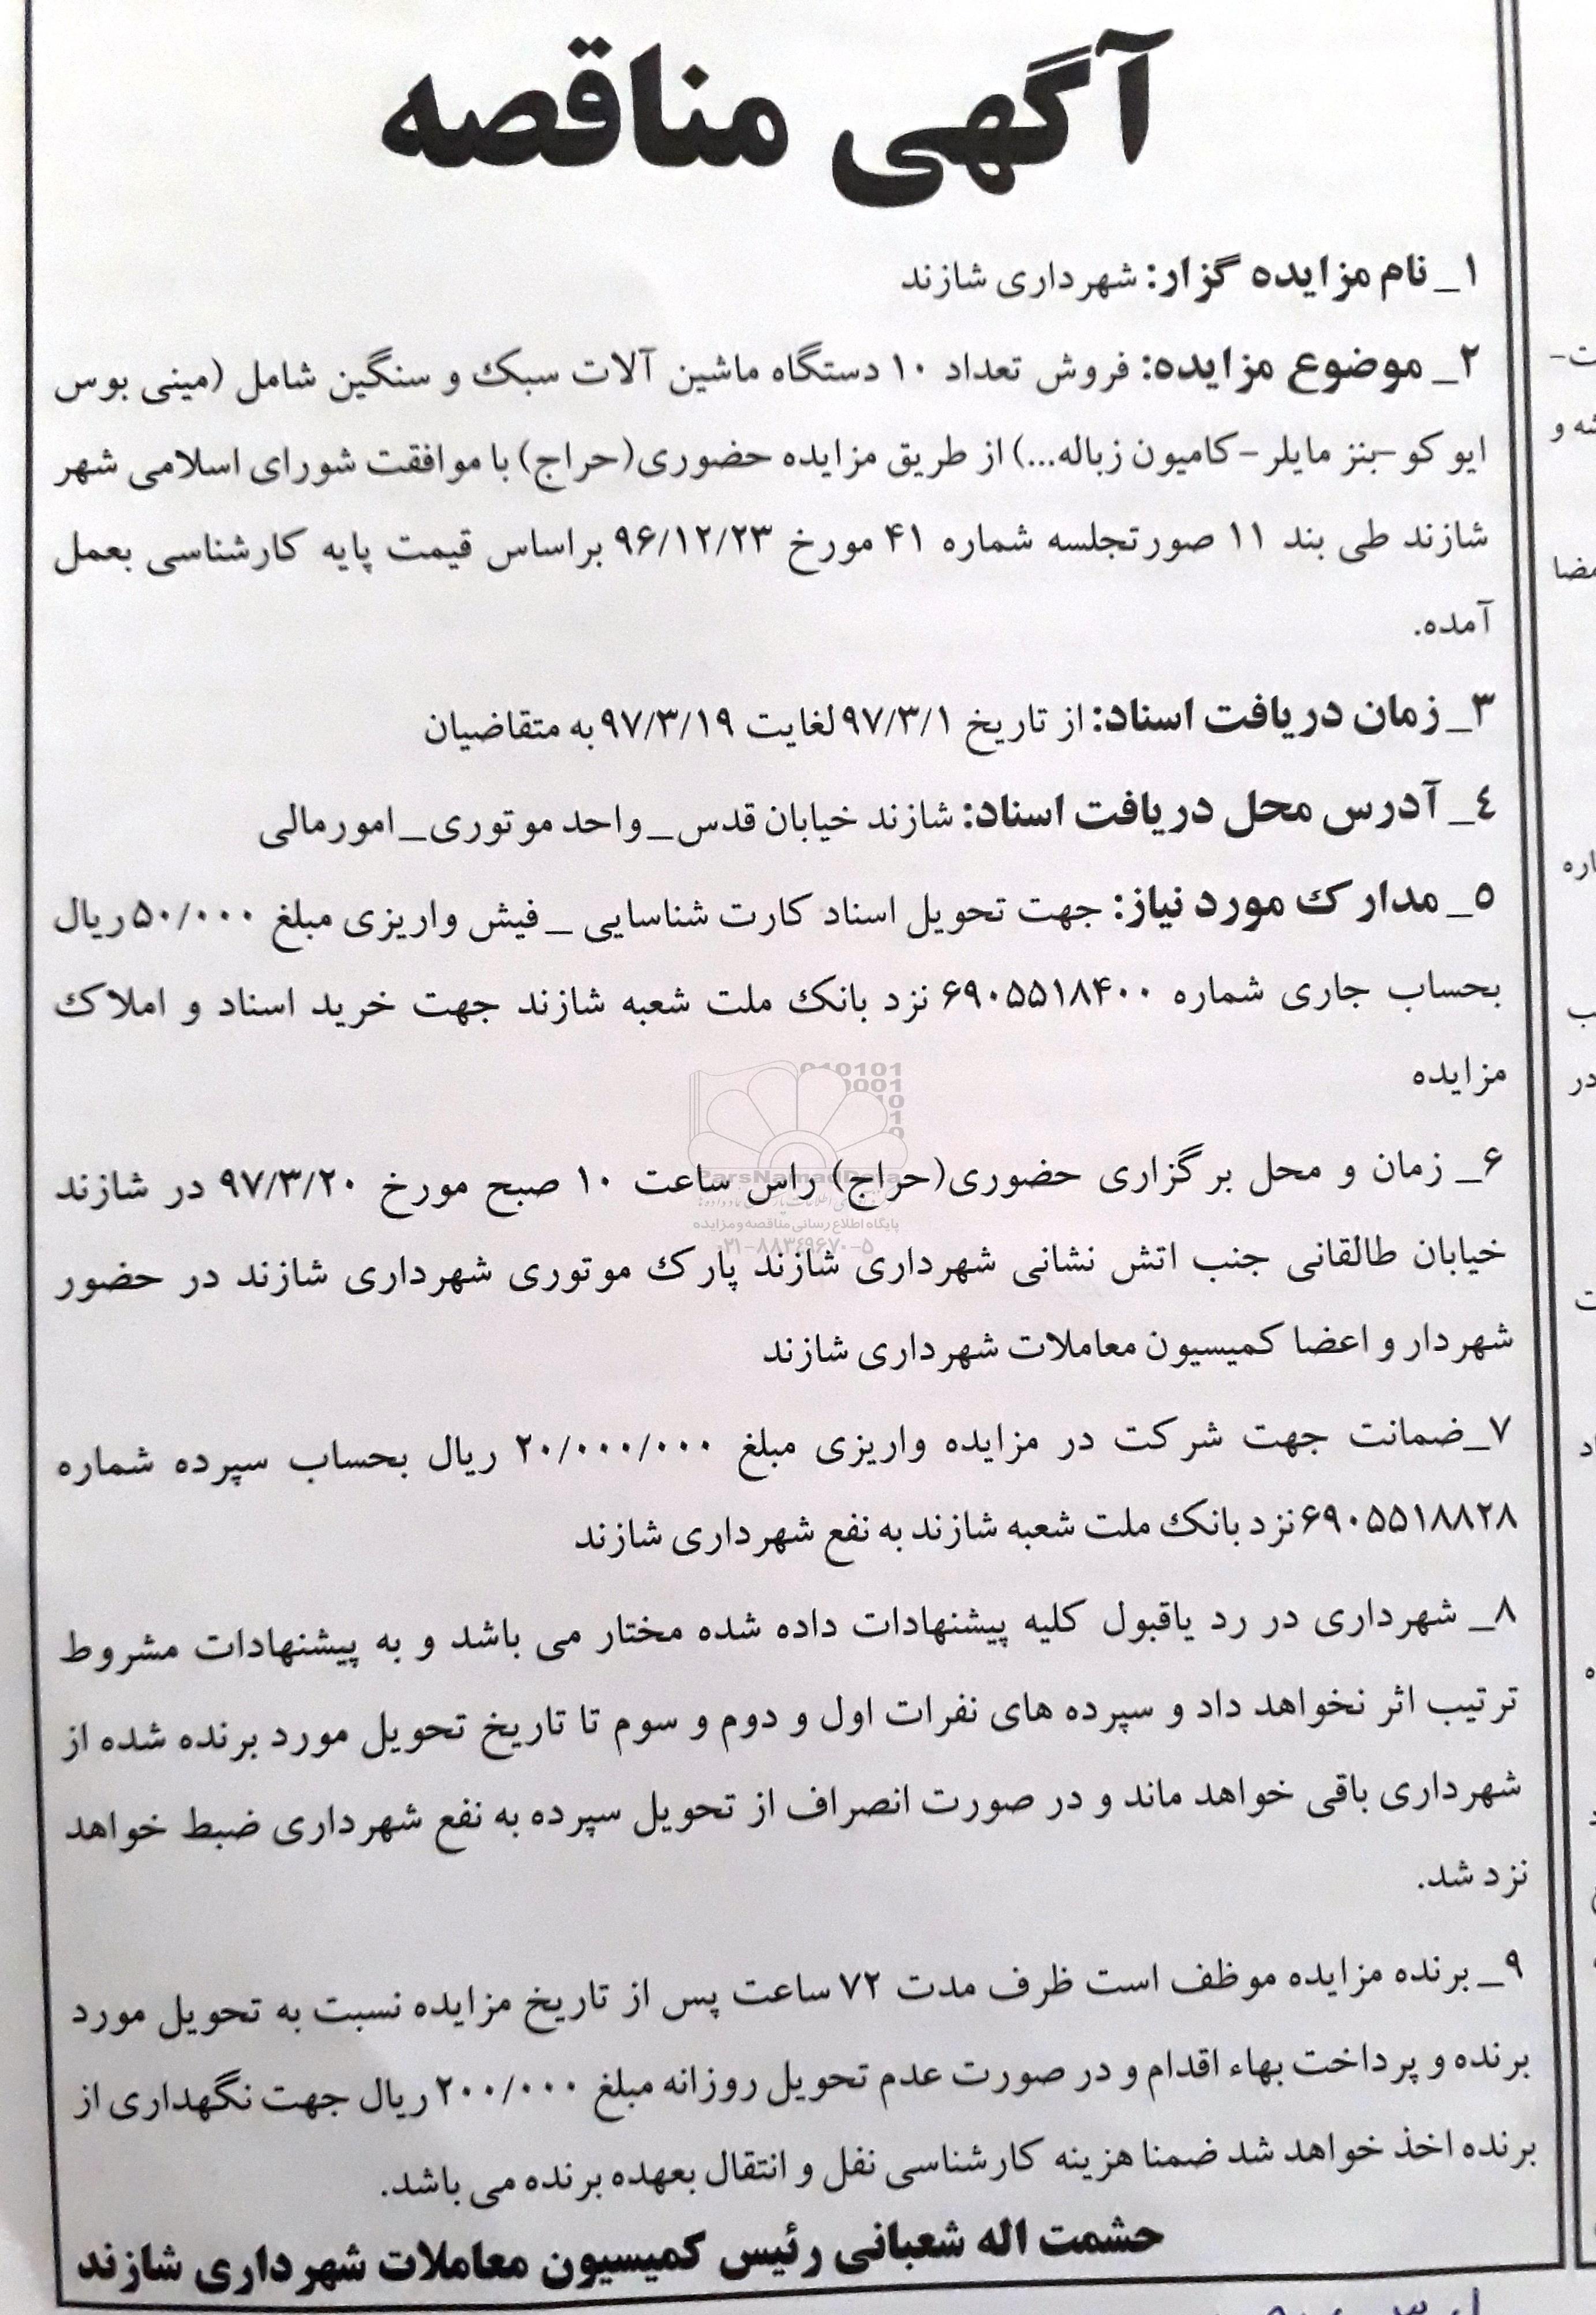 آگهی مناقصه
۱_ نام مزایده گزار: شهرداری شازند
۲_ موضوع مزایده: فروش تعداد ۱۰ دستگاه ماشین آلات سبک و سنگین شامل (مینی بوس
ایو کو -بنز مایلر - کامیون زباله...) از طریق مزایده حضوری(حراج) با موافقت شورای اسلامی شهر
شازند طی بند ۱۱ صورتجلسه شماره ۴۱ مورخ ۹۶/۱۲/۲۳ براساس قیمت پایه کارشناسی بعمل
آمده.
۳_ زمان دریافت اسناد: از تاریخ ۹۷/۳/۱ لغایت ۹۷/۳/۱۹ به متقاضیان
٤_ آدرس محل دریافت اسناد: شازند خیابان قدس_واحد موتوری_امورمالی
۵_ مدارک مورد نیاز: جهت تحویل اسناد کارت شناسایی _ فیش واریزی مبلغ ۵۰/۰۰۰ ریال
بحساب جاری شماره ۶۹۰۵۵۱۸۴۰۰ نزد بانک ملت شعبه شازند جهت خرید اسناد و املاک
مزایده
010101
0001
ParsNamadData
۶_ زمان و محل برگزاری حضوری(حراج) راس ساعت ۱۰ صبح مورخ ۹۷/۳/۲۰ در شازند
پایگاه اطلاع رسانی مناقصه و مزایده
۰۲۱-۸۸۳۴۹۶۷۰-۵
خیابان طالقانی جنب اتش نشانی شهرداری شازند پارک موتوری شهرداری شازند در حضور
شهردار و اعضا کمیسیون معاملات شهرداری شازند
۷_ضمانت جهت شرکت در مزایده واریزی مبلغ ۲۰/۰۰۰/۰۰۰ ریال بحساب سپرده شماره
۶۹۰۵۵۱۸۸۲۸ نزد بانک ملت شعبه شازند به نفع شهرداری شازند
۸_ شهرداری در رد یاقبول کلیه پیشنهادات داده شده مختار می باشد و به پیشنهادات مشروط
ترتیب اثر نخواهد داد و سپرده های نفرات اول و دوم و سوم تا تاریخ تحویل مورد برنده شده از
شهرداری باقی خواهد ماند و در صورت انصراف از تحویل سپرده به نفع شهرداری ضبط خواهد
نزد شد.
۹_ برنده مزایده موظف است ظرف مدت ۷۲ ساعت پس از تاریخ مزایده نسبت به تحویل مورد
برنده و پرداخت بهاء اقدام و در صورت عدم تحویل روزانه مبلغ ۲۰۰/۰۰۰ ریال جهت نگهداری از
برنده اخذ خواهد شد ضمنا هزینه کارشناسی نفل و انتقال بعهده برنده می باشد.
حشمت اله شعبانی رئیس کمیسیون معاملات شهرداری شازند